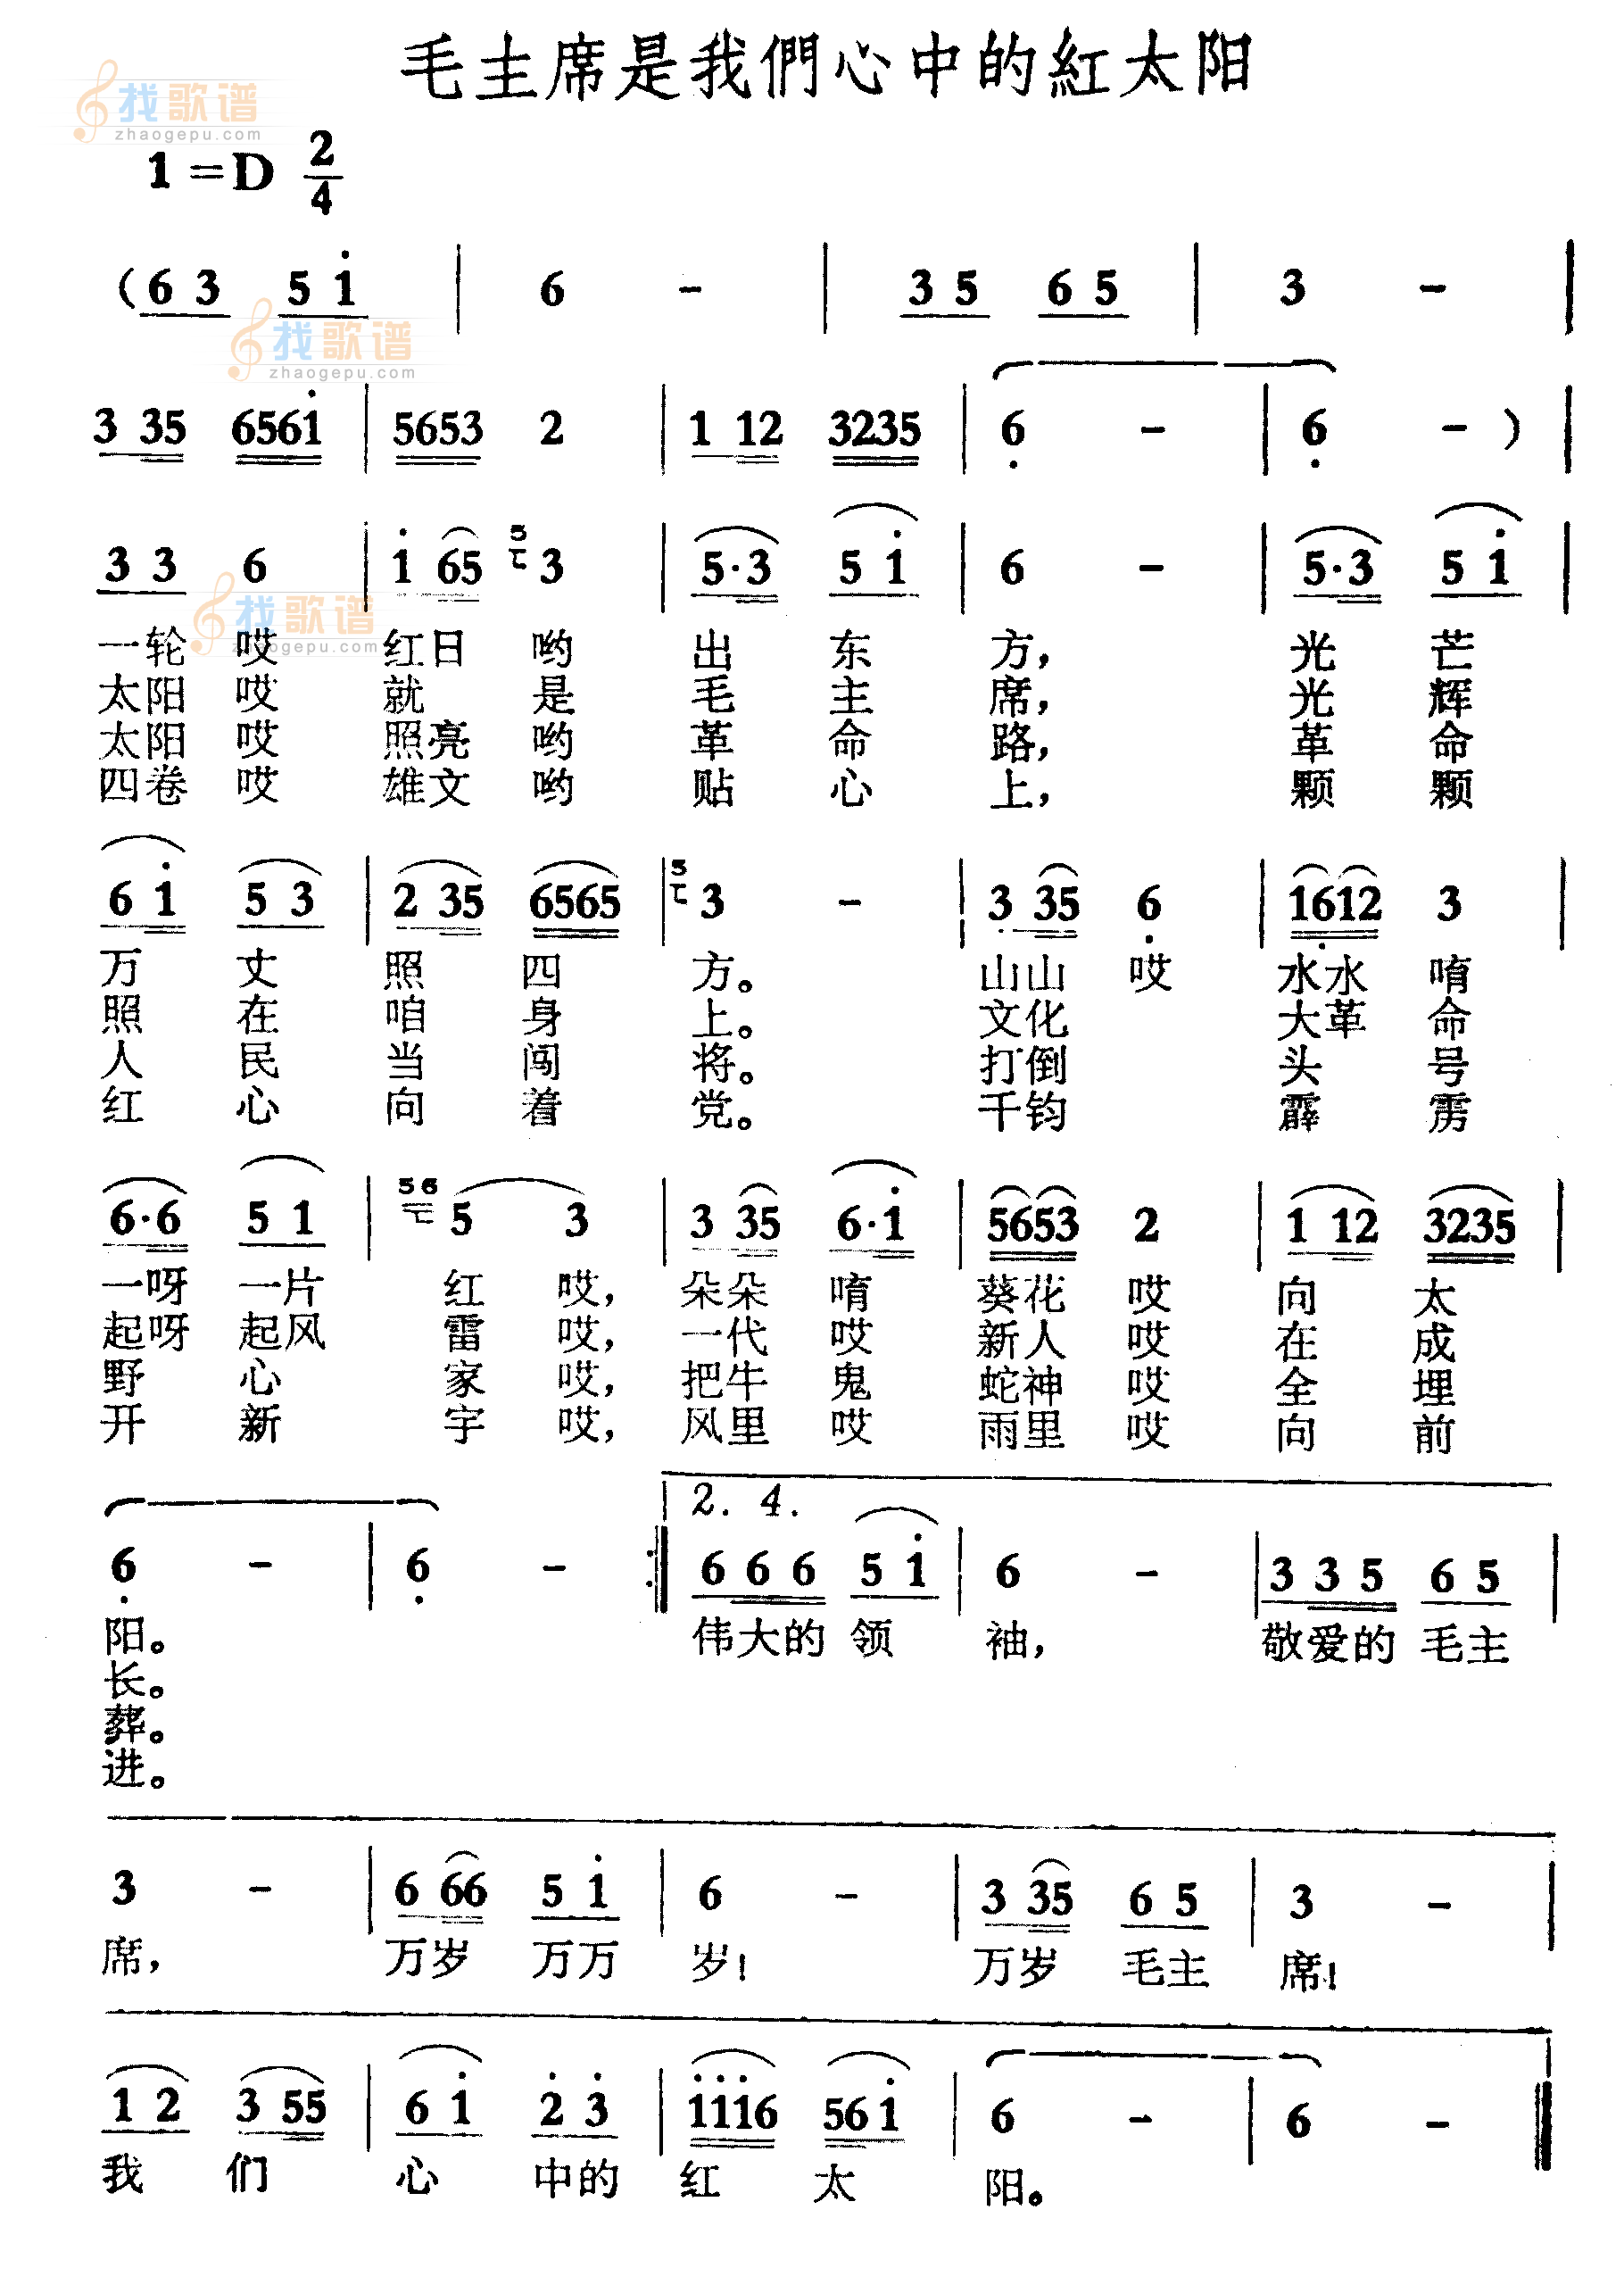 毛主席是我們心中的紅太阳
找歌谱
zhaogepu.com
1=D 2/4
(6 3 5 1̇ | 6 - | 3 5 6 5 | 3 - |
找歌谱
zhaogepu.com
3 35 6561̇ | 5653 2 | 1 12 3235 | 6̣ - | 6̣ - ) |
3 3 6 | 1̇ 65 5 3 | 5·3 5 1̇ | 6 - | 5·3 5 1̇ |
找歌谱
zhaogepu.com
一轮 哎 红日 哟 出 东 方, 光 芒
太阳 哎 就 是 毛 主 席, 光 辉
太阳 哎 照亮 哟 革 命 路, 革 命
四卷 哎 雄文 哟 贴 心 上, 颗 颗
6 1̇ 5 3 | 2 35 6565 | 5 3 - | 3 35 6̣ | 16̣12 3 |
万 丈 照 四 方。 山山 哎 水水 唷
照 在 咱 身 上。 文化 大革 命
人 民 当 闯 将。 打倒 头 号
红 心 向 着 党。 千钧 霹 雳
6·6 5 1 | 56 5 3 | 3 35 6·1̇ | 5653 2 | 1 12 3235 |
一呀 一片 红 哎, 朵朵 唷 葵花 哎 向 太
起呀 起风 雷 哎, 一代 哎 新人 哎 在 成
野 心 家 哎, 把牛 鬼 蛇神 哎 全 埋
开 新 宇 哎, 风里 哎 雨里 哎 向 前
6̣ - | 6̣ - :| 2. 4. 6 6 6 5 1̇ | 6 - | 3 3 5 6 5 |
阳。 伟大的 领 袖, 敬爱的 毛主
长。
葬。
进。
3 - | 6 66 5 1̇ | 6 - | 3 35 6 5 | 3 - |
席, 万岁 万万 岁! 万岁 毛主 席!
1 2 3 55 | 6 1̇ 2̇ 3̇ | 1̇1̇1̇6 561̇ | 6 - | 6 - ‖
我 们 心 中的 红 太 阳。